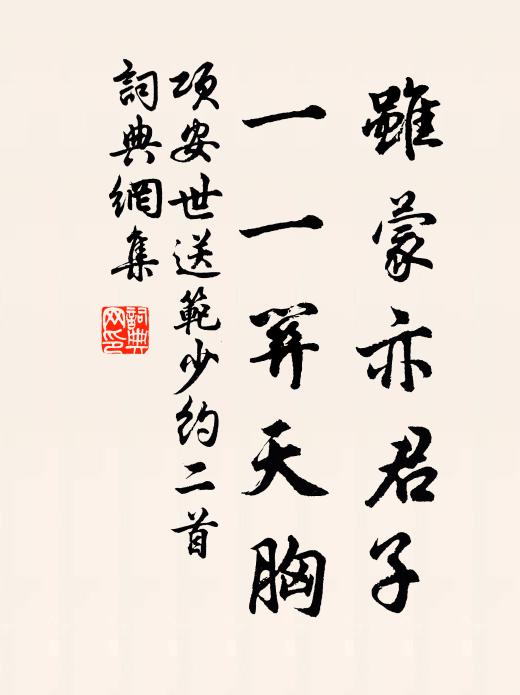 雖蒙亦君子
一一算天胸
項安世送範少約二首
詞典網集
詞典
网印